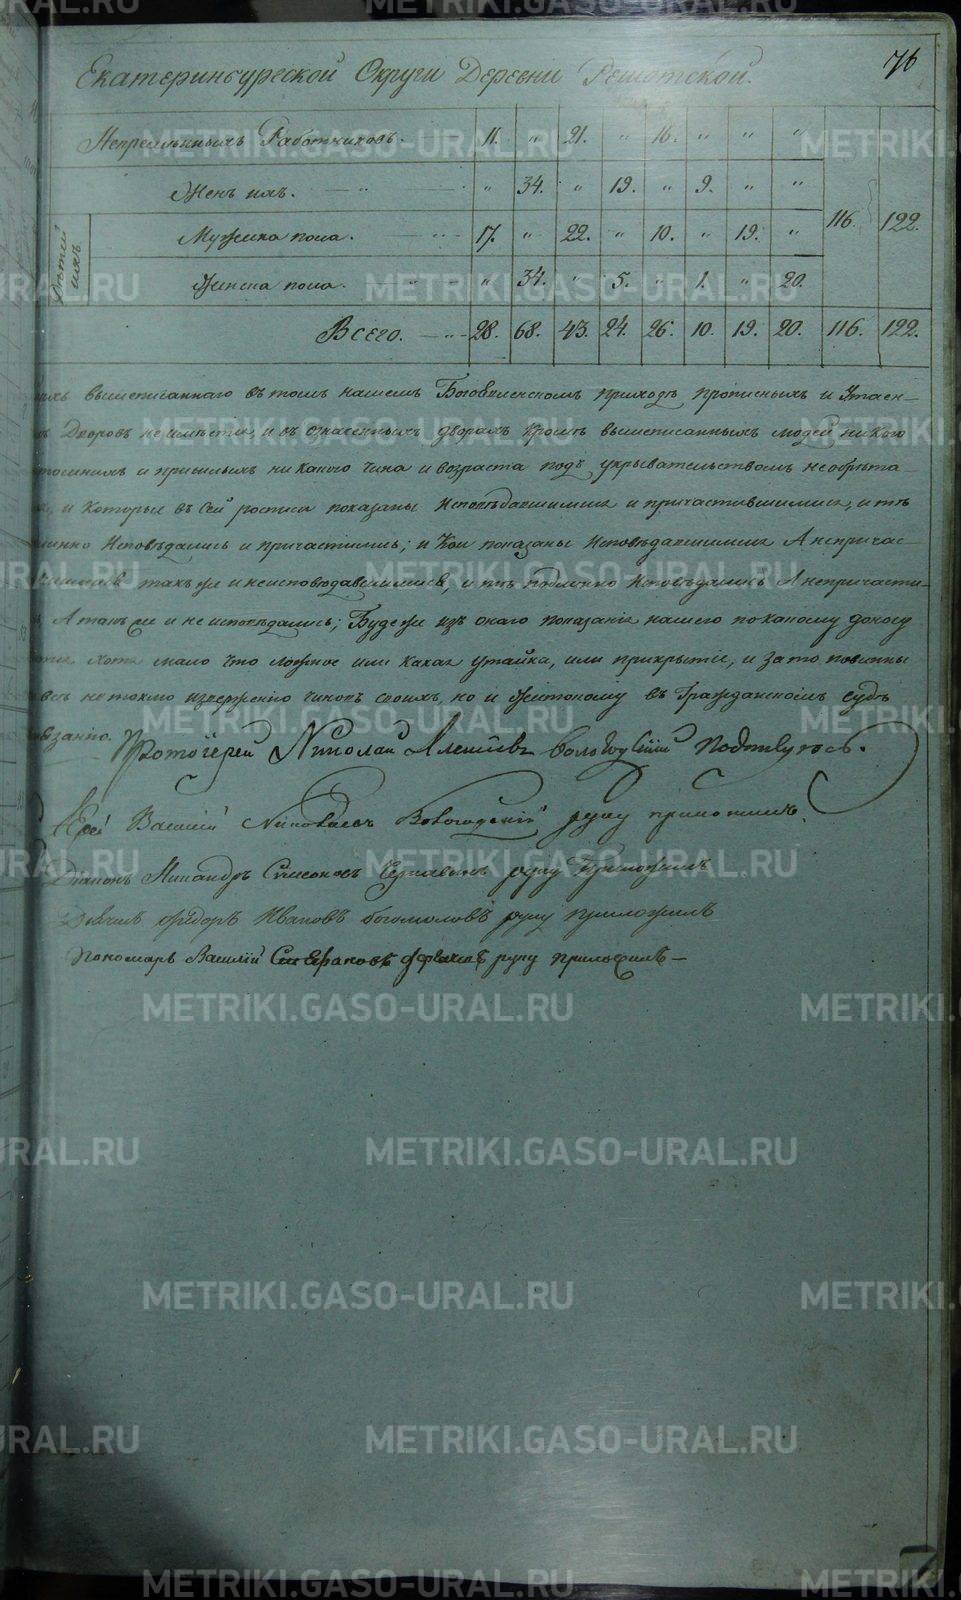 76
Екатеринбургской Округи Деревни Решотской.
Непремѣнныхъ Работниковъ. 11. „ 21. „ 16. „ „ „
Женъ ихъ. „ 34. „ 19. „ 9. „ „
Дѣтей ихъ
Мужеска пола. 17. „ 22. „ 10. „ 19. „ 116. 122.
Женска пола. „ 34. „ 5. „ 1. „ 20.
Всего. 28. 68. 43. 24. 26. 10. 19. 20. 116. 122.
вышеписаннаго въ томъ нашемъ Богоявленскомъ приходѣ прописныхъ и Утаен-
Дворовъ неимѣется, и въ означенныхъ дворахъ кромѣ вышеписанныхъ людей никого
и пришлыхъ никакого чина и возраста подъ укрывательствомъ необрѣта-
и которые въ сей росписи показаны Исповѣдавшимися и причастившимися, и тѣ
Исповѣдались и причастились; и Кои показаны Исповѣдавшимися А непричас-
также и неисповѣдавшимися, и тѣ подлинно Исповѣдались А непричасти-
А также и не исповѣдались; Буде же изъ онаго показанія нашего по какому доносу
хотя мало что ложное или какая утайка, или прикрытіе, и за то повинны
не токмо изверженію чиновъ своихъ, но и жестокому въ Гражданскомъ судѣ
Протоіерей Николай Алексіевъ Вологодскій Подпишусь.
Іерей Василій Николаевъ Вологодскій руку приложилъ.
Діаконъ Никандръ Симеоновъ руку Приложилъ
Дьячекъ Ѳедоръ Ивановъ Богомоловъ руку приложилъ
Пономарь Василій Стефановъ руку приложилъ —
METRIKI.GASO-URAL.RU